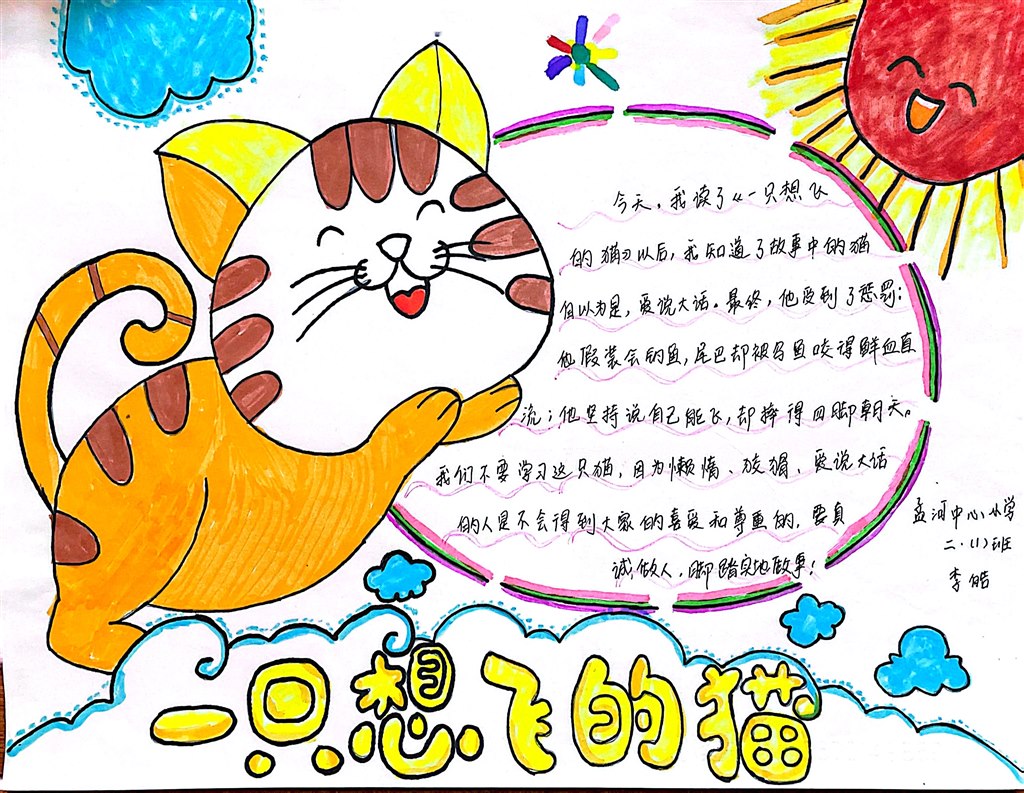 今天,我读了《一只想飞
的猫》以后,我知道了故事中的猫
自以为是,爱说大话。最终,他受到了惩罚:
他假装会钓鱼,尾巴却被乌鱼咬得鲜血直
流;他坚持说自己能飞,却摔得四脚朝天。
我们不要学习这只猫,因为懒惰、狡猾、爱说大话
的人是不会得到大家的喜爱和尊重的,要真
诚做人,脚踏实地做事!
孟河中心小学
二·(1)班
李皓
一只想飞的猫